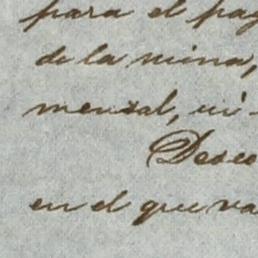 para el pag
de la mina,
mensal, ni-
Deseo
en el que va